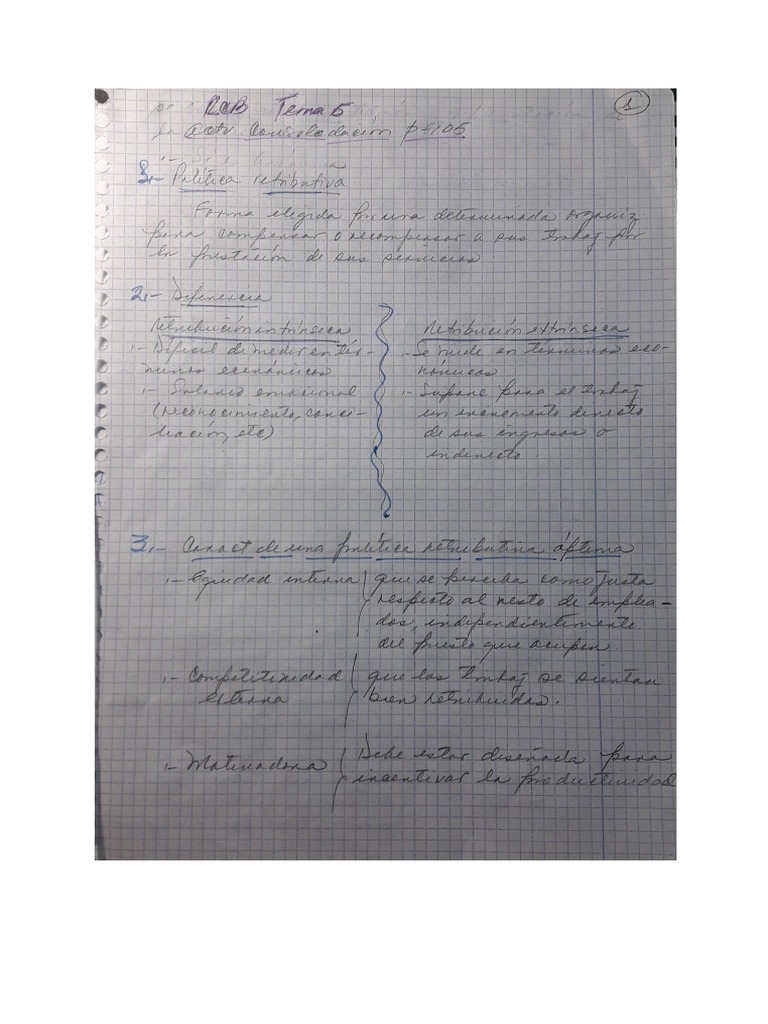 RCB Tema 5
1
Activ Consolodación p#105
1.- Política retributiva
Forma elegida por una determinada organiz
para compensar o recompensar a sus trabaj por
la prestación de sus servicios.
2.- Diferencia
Retribución intrínseca
1.- Díficil de medir en tér-
minos económicos
1.- Salario emocional
(reconocimiento, conci-
liación, etc)
Retribución extrínseca
1.- Se mide en términos eco-
nómicos
1.- Supone para el trabaj
un incremento directo
de sus ingresos o
indirecto
3.- Caract de una política retributiva óptima
1.- Equidad interna
que se perciba como justa
respecto al resto de emplea-
dos, independientemente
del puesto que ocupen.
1.- Competitividad
externa
que los trabaj se sientan
bien retribuidos.
1.- Motivadora
Debe estar diseñada para
incentivar la productividad